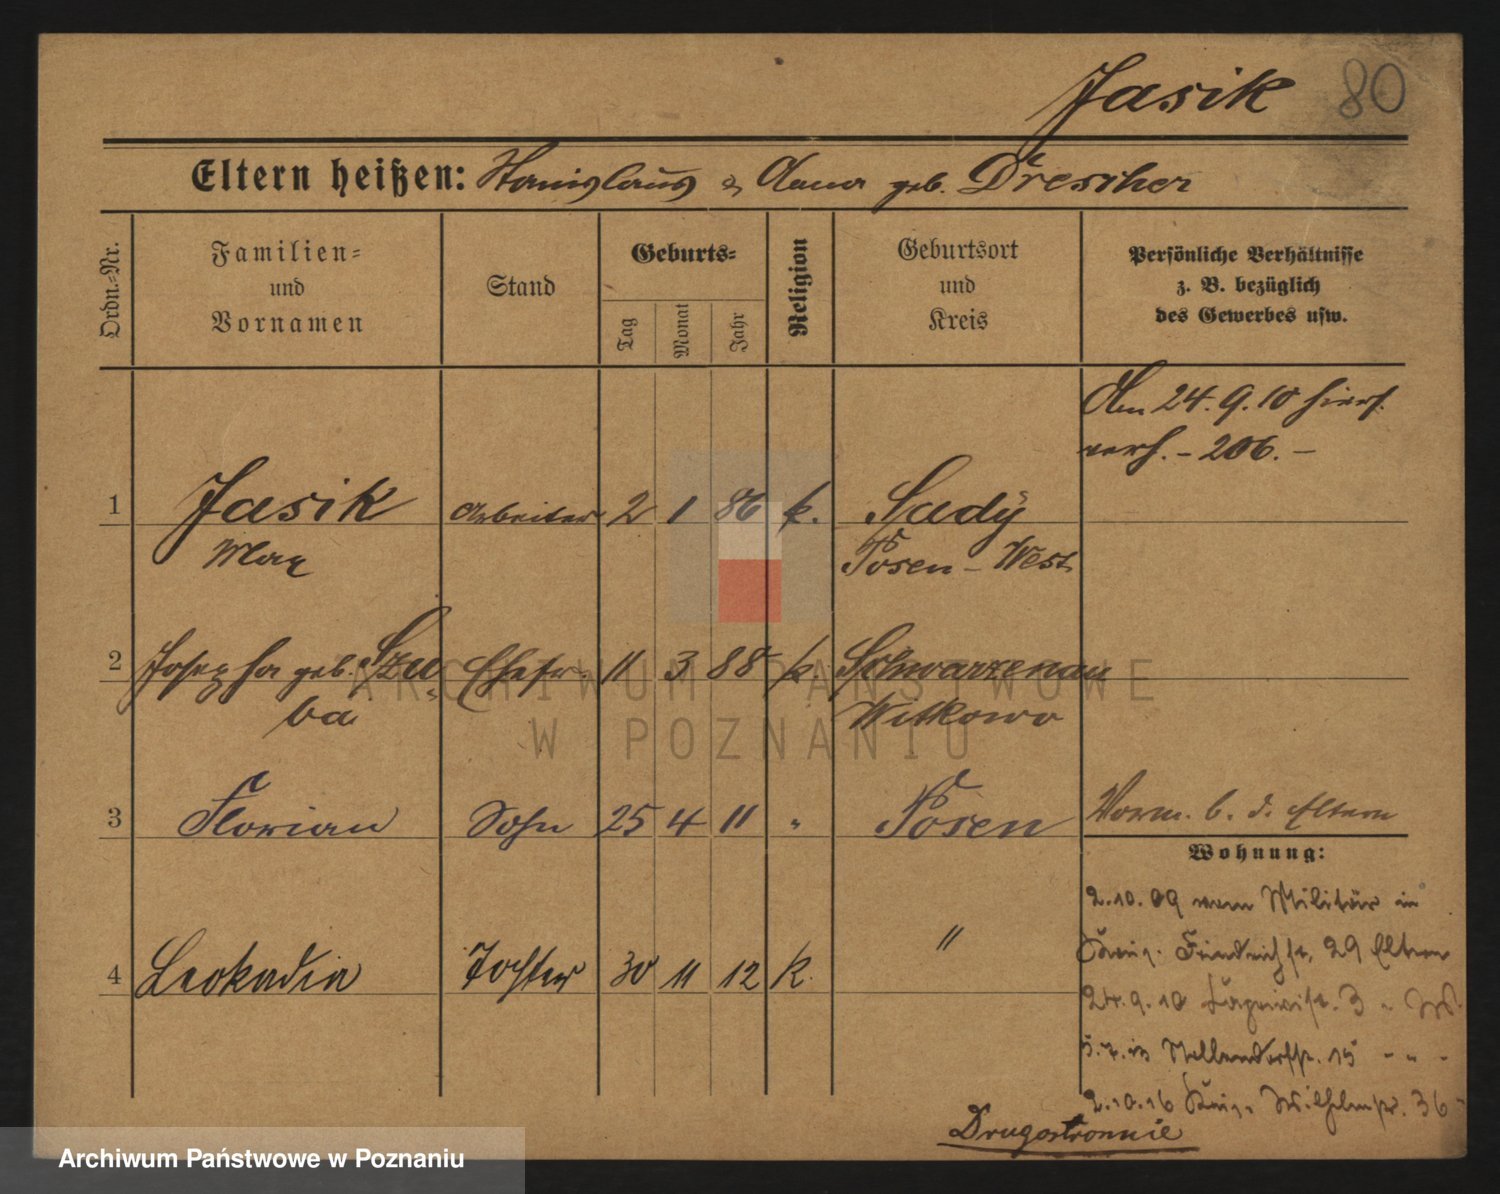 Jasik 80
Eltern heißen: Stanislaus & Anna geb. Drescher
Ordn.-Nr.
Familien-
und
Vornamen
Stand
Geburts-
Tag
Monat
Jahr
Religion
Geburtsort
und
Kreis
Persönliche Verhältnisse
z. B. bezüglich
des Gewerbes usw.
Am 24. 9. 10 hiers.
verh. - 206. -
1 Jasik Arbeiter 2 1 86 k. Sady
Max Posen - West
2 Josepha geb. Szu Ehefr. 11 3 88 k. Schwarzenau
ba Witkowo
3 Florian Sohn 25 4 11 " Posen Vorm. b. d. Eltern
Wohnung:
2.10.09 vom Militär in
Friedrichstr. 29 Eltern
4 Leokadia Tochter 30 11 12 k. "
24.9.10 3 " W.
15 " " "
2.10.16 Wilhelmstr. 36
Drugostronnie
ARCHIWUM PAŃSTWOWE
W POZNANIU
Archiwum Państwowe w Poznaniu